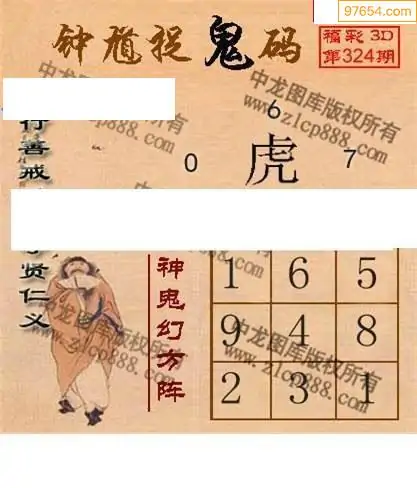 97654.com
钟馗捉鬼码
福彩3D
第324期
中龙图库版权所有
www.zlcp888.com
6
0 虎 7
行善戒
贤仁义
神鬼幻方阵
1 6 5
9 4 8
2 3 1
中龙图库版权所有
www.zlcp888.com
中龙图库版权所有
www.zlcp888.com